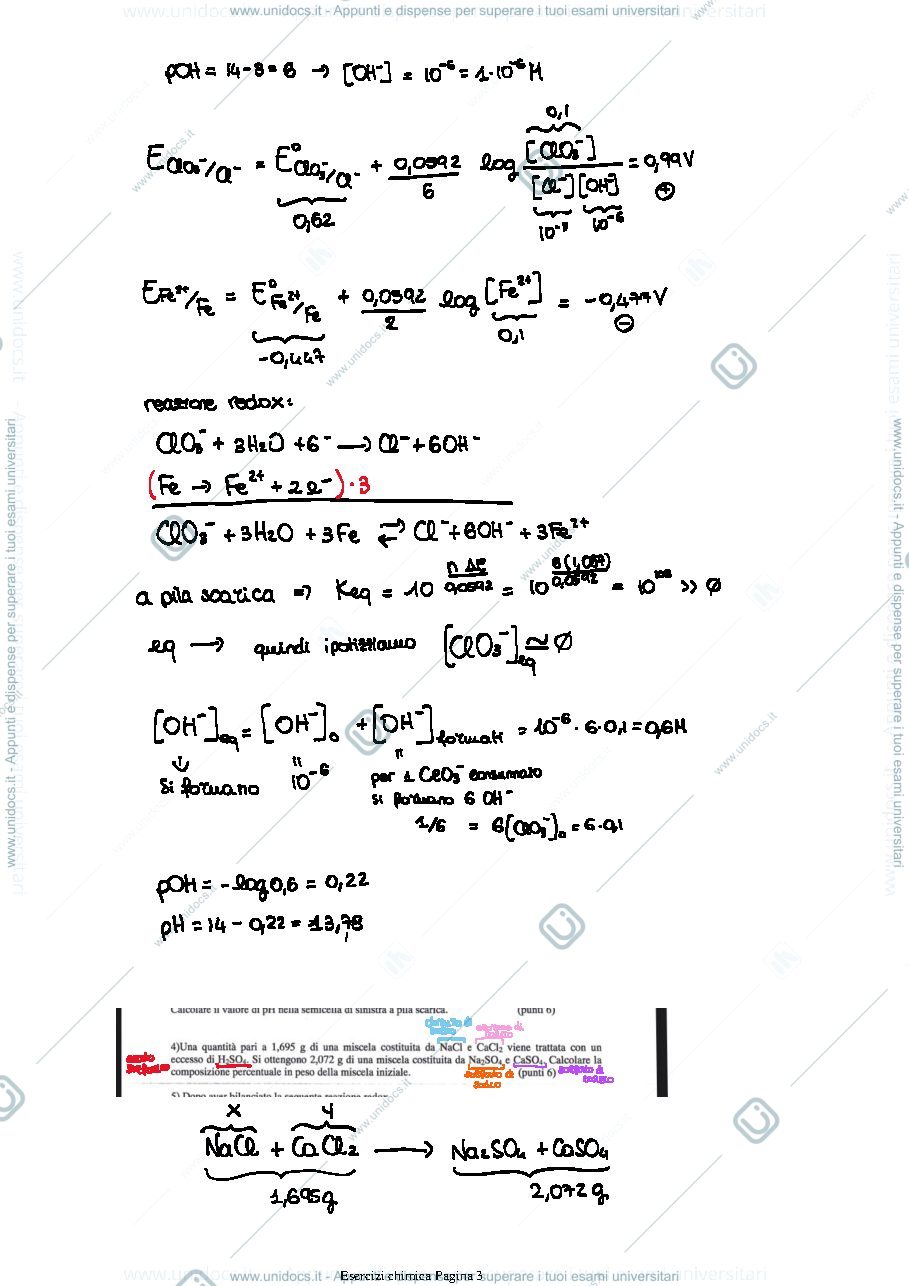 www.unidocs.it - Appunti e dispense per superare i tuoi esami universitari
pOH = 14-8 = 6 → [OH⁻] = 10⁻⁶ = 1·10⁻⁶ M
0,1
E ClO₃⁻/Cl⁻ = E⁰ ClO₃⁻/Cl⁻ + 0,0592/6 log [ClO₃⁻]/[Cl⁻][OH⁻] = 0,99 V
0,62
10⁻⁶
⊕
E Fe²⁺/Fe = E⁰ Fe²⁺/Fe + 0,0592/2 log [Fe²⁺] = -0,477 V
-0,447
0,1
⊖
reazione redox:
ClO₃⁻ + 3H₂O + 6⁻ → Cl⁻ + 6OH⁻
(Fe → Fe²⁺ + 2e⁻)·3
ClO₃⁻ + 3H₂O + 3Fe ⇄ Cl⁻ + 6OH⁻ + 3Fe²⁺
a pila scarica ⇒ Keq = 10^(n ΔE/0,0592) = 10 = 10 >> Ø
eq → quindi ipotizziamo [ClO₃⁻]eq ≃ Ø
[OH⁻]eq = [OH⁻]₀ + [OH⁻]formati = 10⁻⁶ · 6·0,1 = 0,6 M
si formano
10⁻⁶
per 1 ClO₃⁻ consumato
si formano 6 OH⁻
1/6 = 6[ClO₃⁻]₀ = 6·0,1
pOH = -log 0,6 = 0,22
pH = 14 - 0,22 = 13,78
Calcolare il valore di pH nella semicella di sinistra a pila scarica. (punti 6)
4)Una quantità pari a 1,695 g di una miscela costituita da NaCl e CaCl₂ viene trattata con un
eccesso di H₂SO₄. Si ottengono 2,072 g di una miscela costituita da Na₂SO₄ e CaSO₄. Calcolare la
composizione percentuale in peso della miscela iniziale. (punti 6)
5) Dopo aver bilanciato la seguente reazione redox
x y
NaCl + CaCl₂ → Na₂SO₄ + CaSO₄
1,695g 2,072 g
Esercizi chimica Pagina 3
www.unidocs.it - Appunti e dispense per superare i tuoi esami universitari